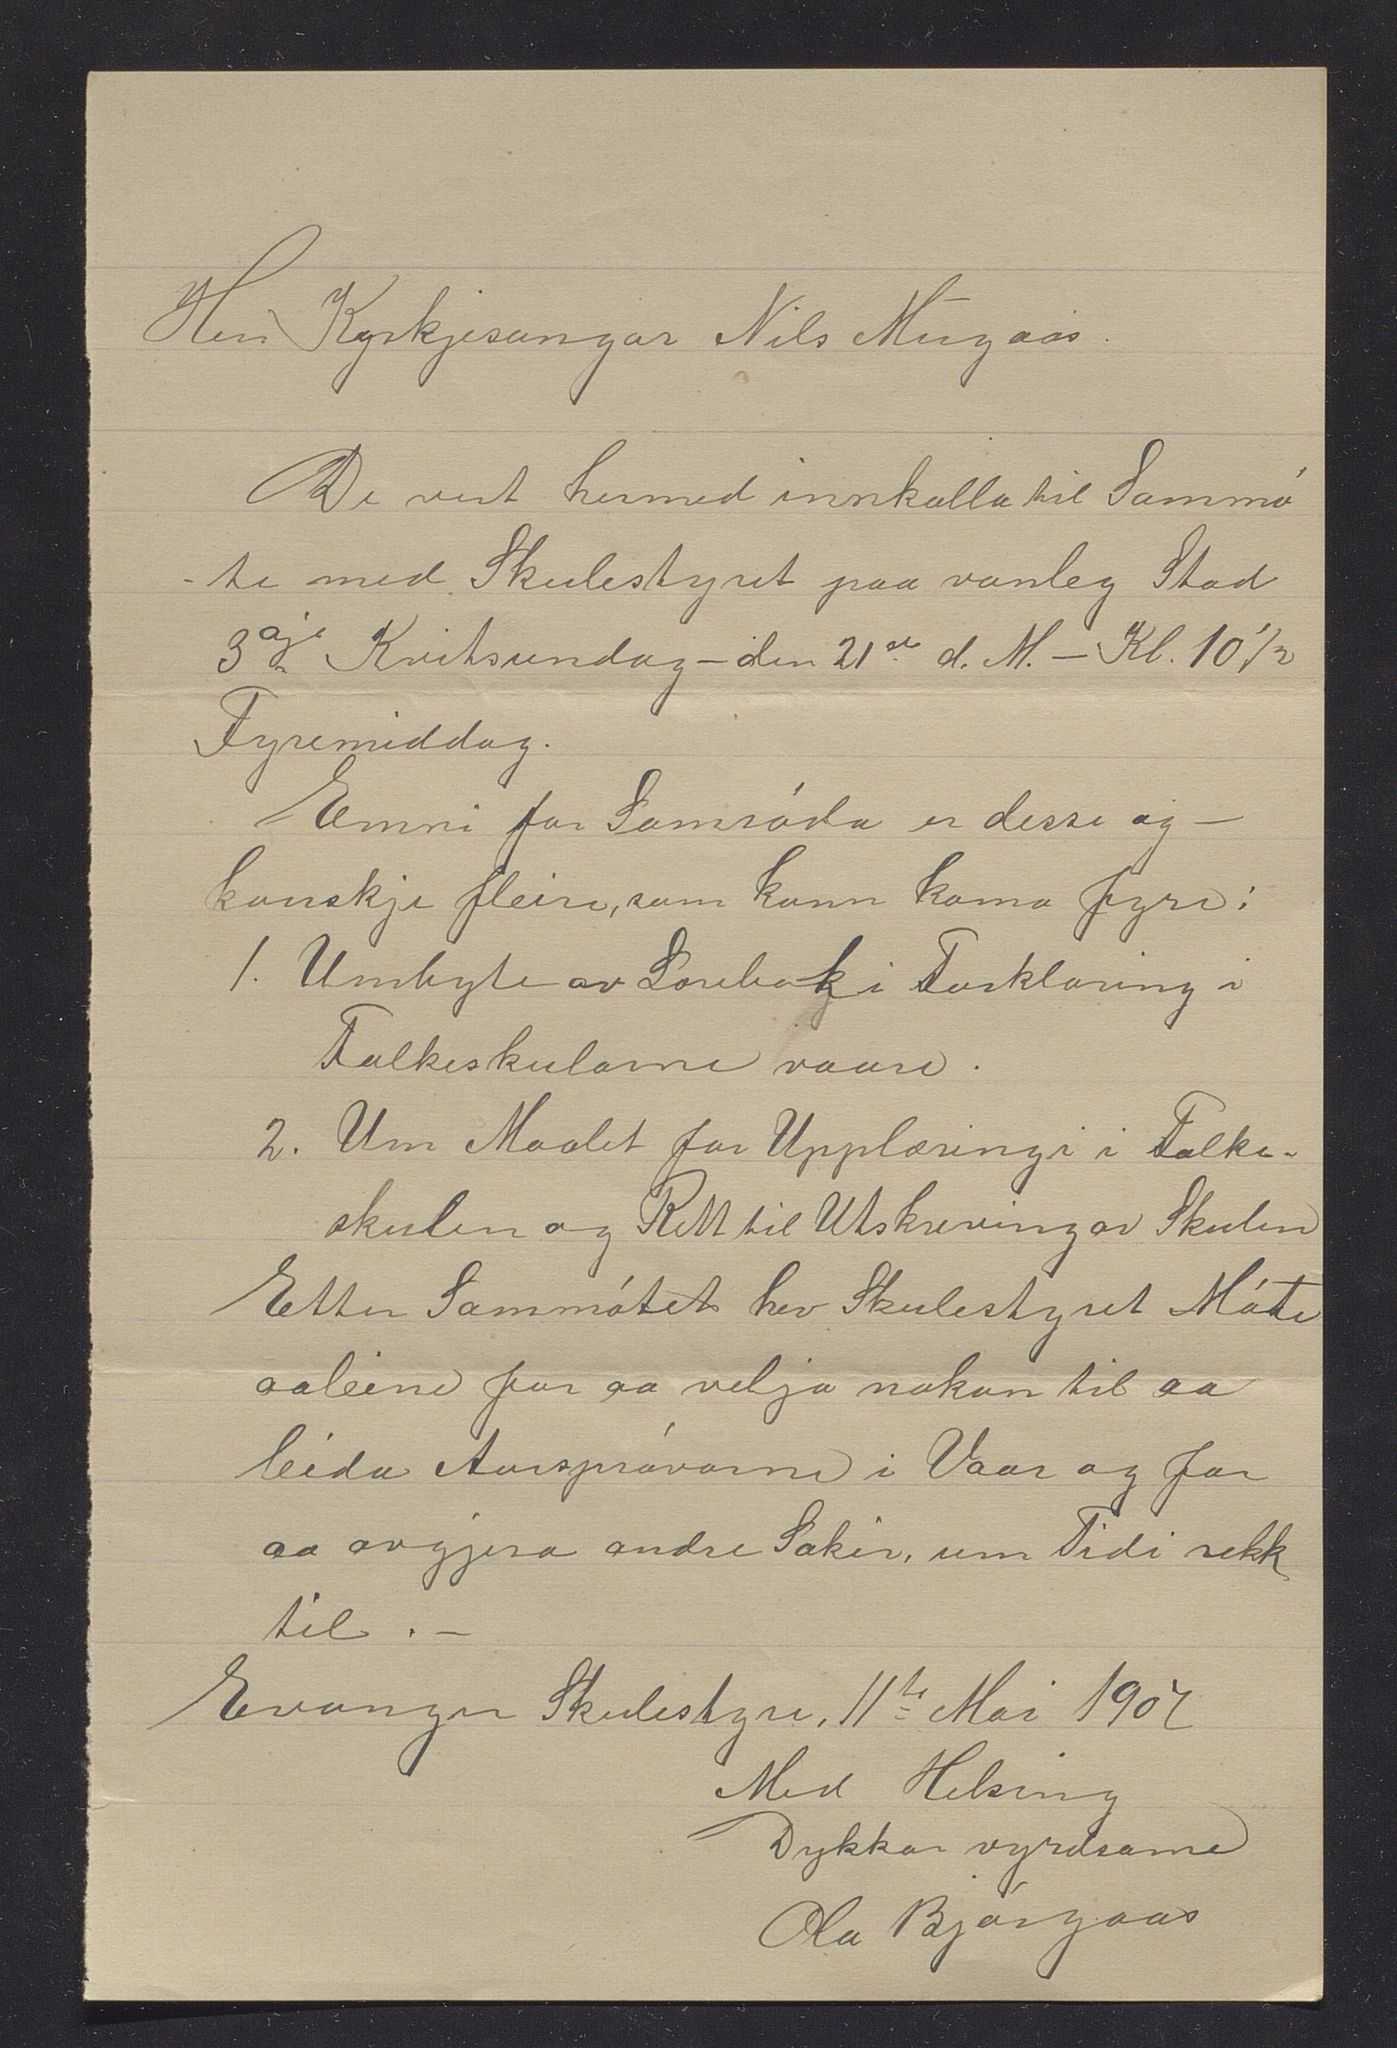 Herr Kyrkjesangar Nils Mugaas.
De vert hermed innkalla til Sammó
-te med Skulestyret paa vanleg Stad
3dje Kvitsundag – den 21de d. M. – Kl. 10 1/2
Fyremiddag.
Emni for Samróda er desse og –
kanskje fleire, som kann koma fyre:
1. Umbyte av Lærebok i Forklaring i
Folkeskularne vaare.
2. Um Maalet for Upplæringi i Folke-
skulen og Rett til Utskreving av Skulen
Etter Sammótet hev Skulestyret Móte
aaleine for aa velja nokon til aa
leida Aarspróvarne i Vaar og for
aa avgjera andre Saker, um Tidi rekk
til. –
Evanger Skulestyre, 11te Mai 1907
Med Helsing
Dykkar vyrdsame
Ola Bjórgaas